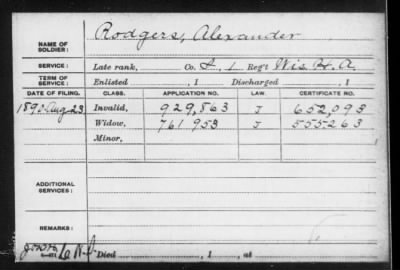 NAME OF SOLDIER: Rodgers, Alexander
SERVICE: Late rank, Co. L, 1 Reg't Wis. H. A.
TERM OF SERVICE: Enlisted , 1 Discharged , 1
DATE OF FILING. CLASS. APPLICATION NO. LAW. CERTIFICATE NO.
1890 Aug 23 Invalid, 929,863 J 652,093
Widow, 761 953 J 555263
Minor,
ADDITIONAL SERVICES:
REMARKS:
Died , 1 , at